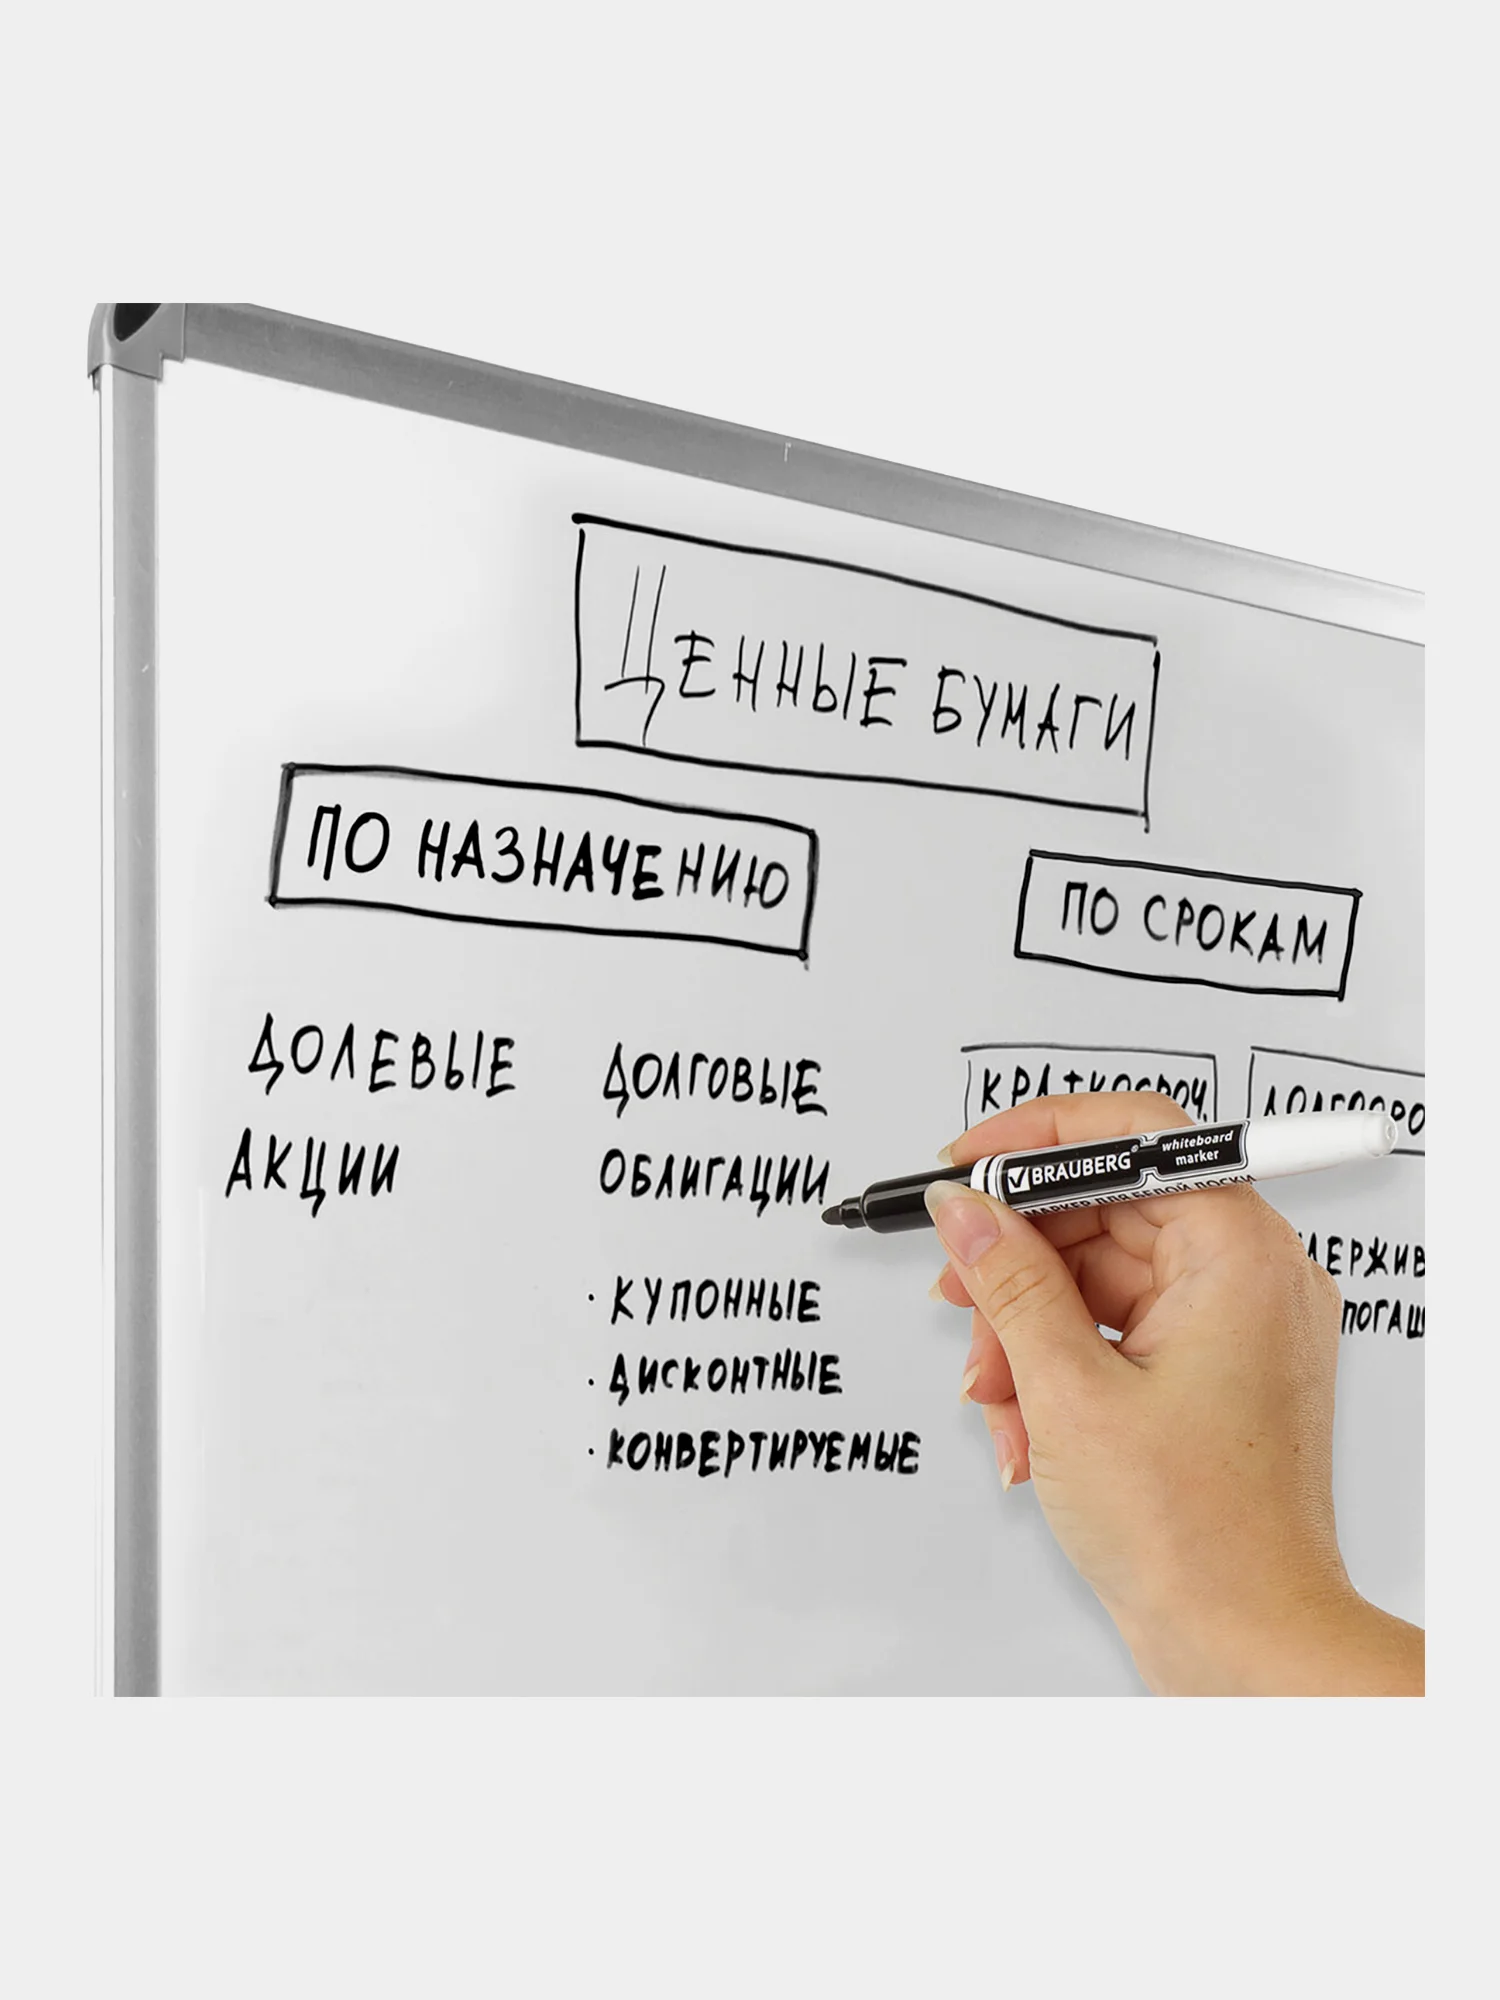 ЦЕННЫЕ БУМАГИ
ПО НАЗНАЧЕНИЮ
ПО СРОКАМ
ДОЛЕВЫЕ
АКЦИИ
ДОЛГОВЫЕ
ОБЛИГАЦИИ
· КУПОННЫЕ
· ДИСКОНТНЫЕ
· КОНВЕРТИРУЕМЫЕ
КРАТКОСРОЧ.
BRAUBERG®
whiteboard
marker
МАРКЕР ДЛЯ БЕЛОЙ ДОСКИ